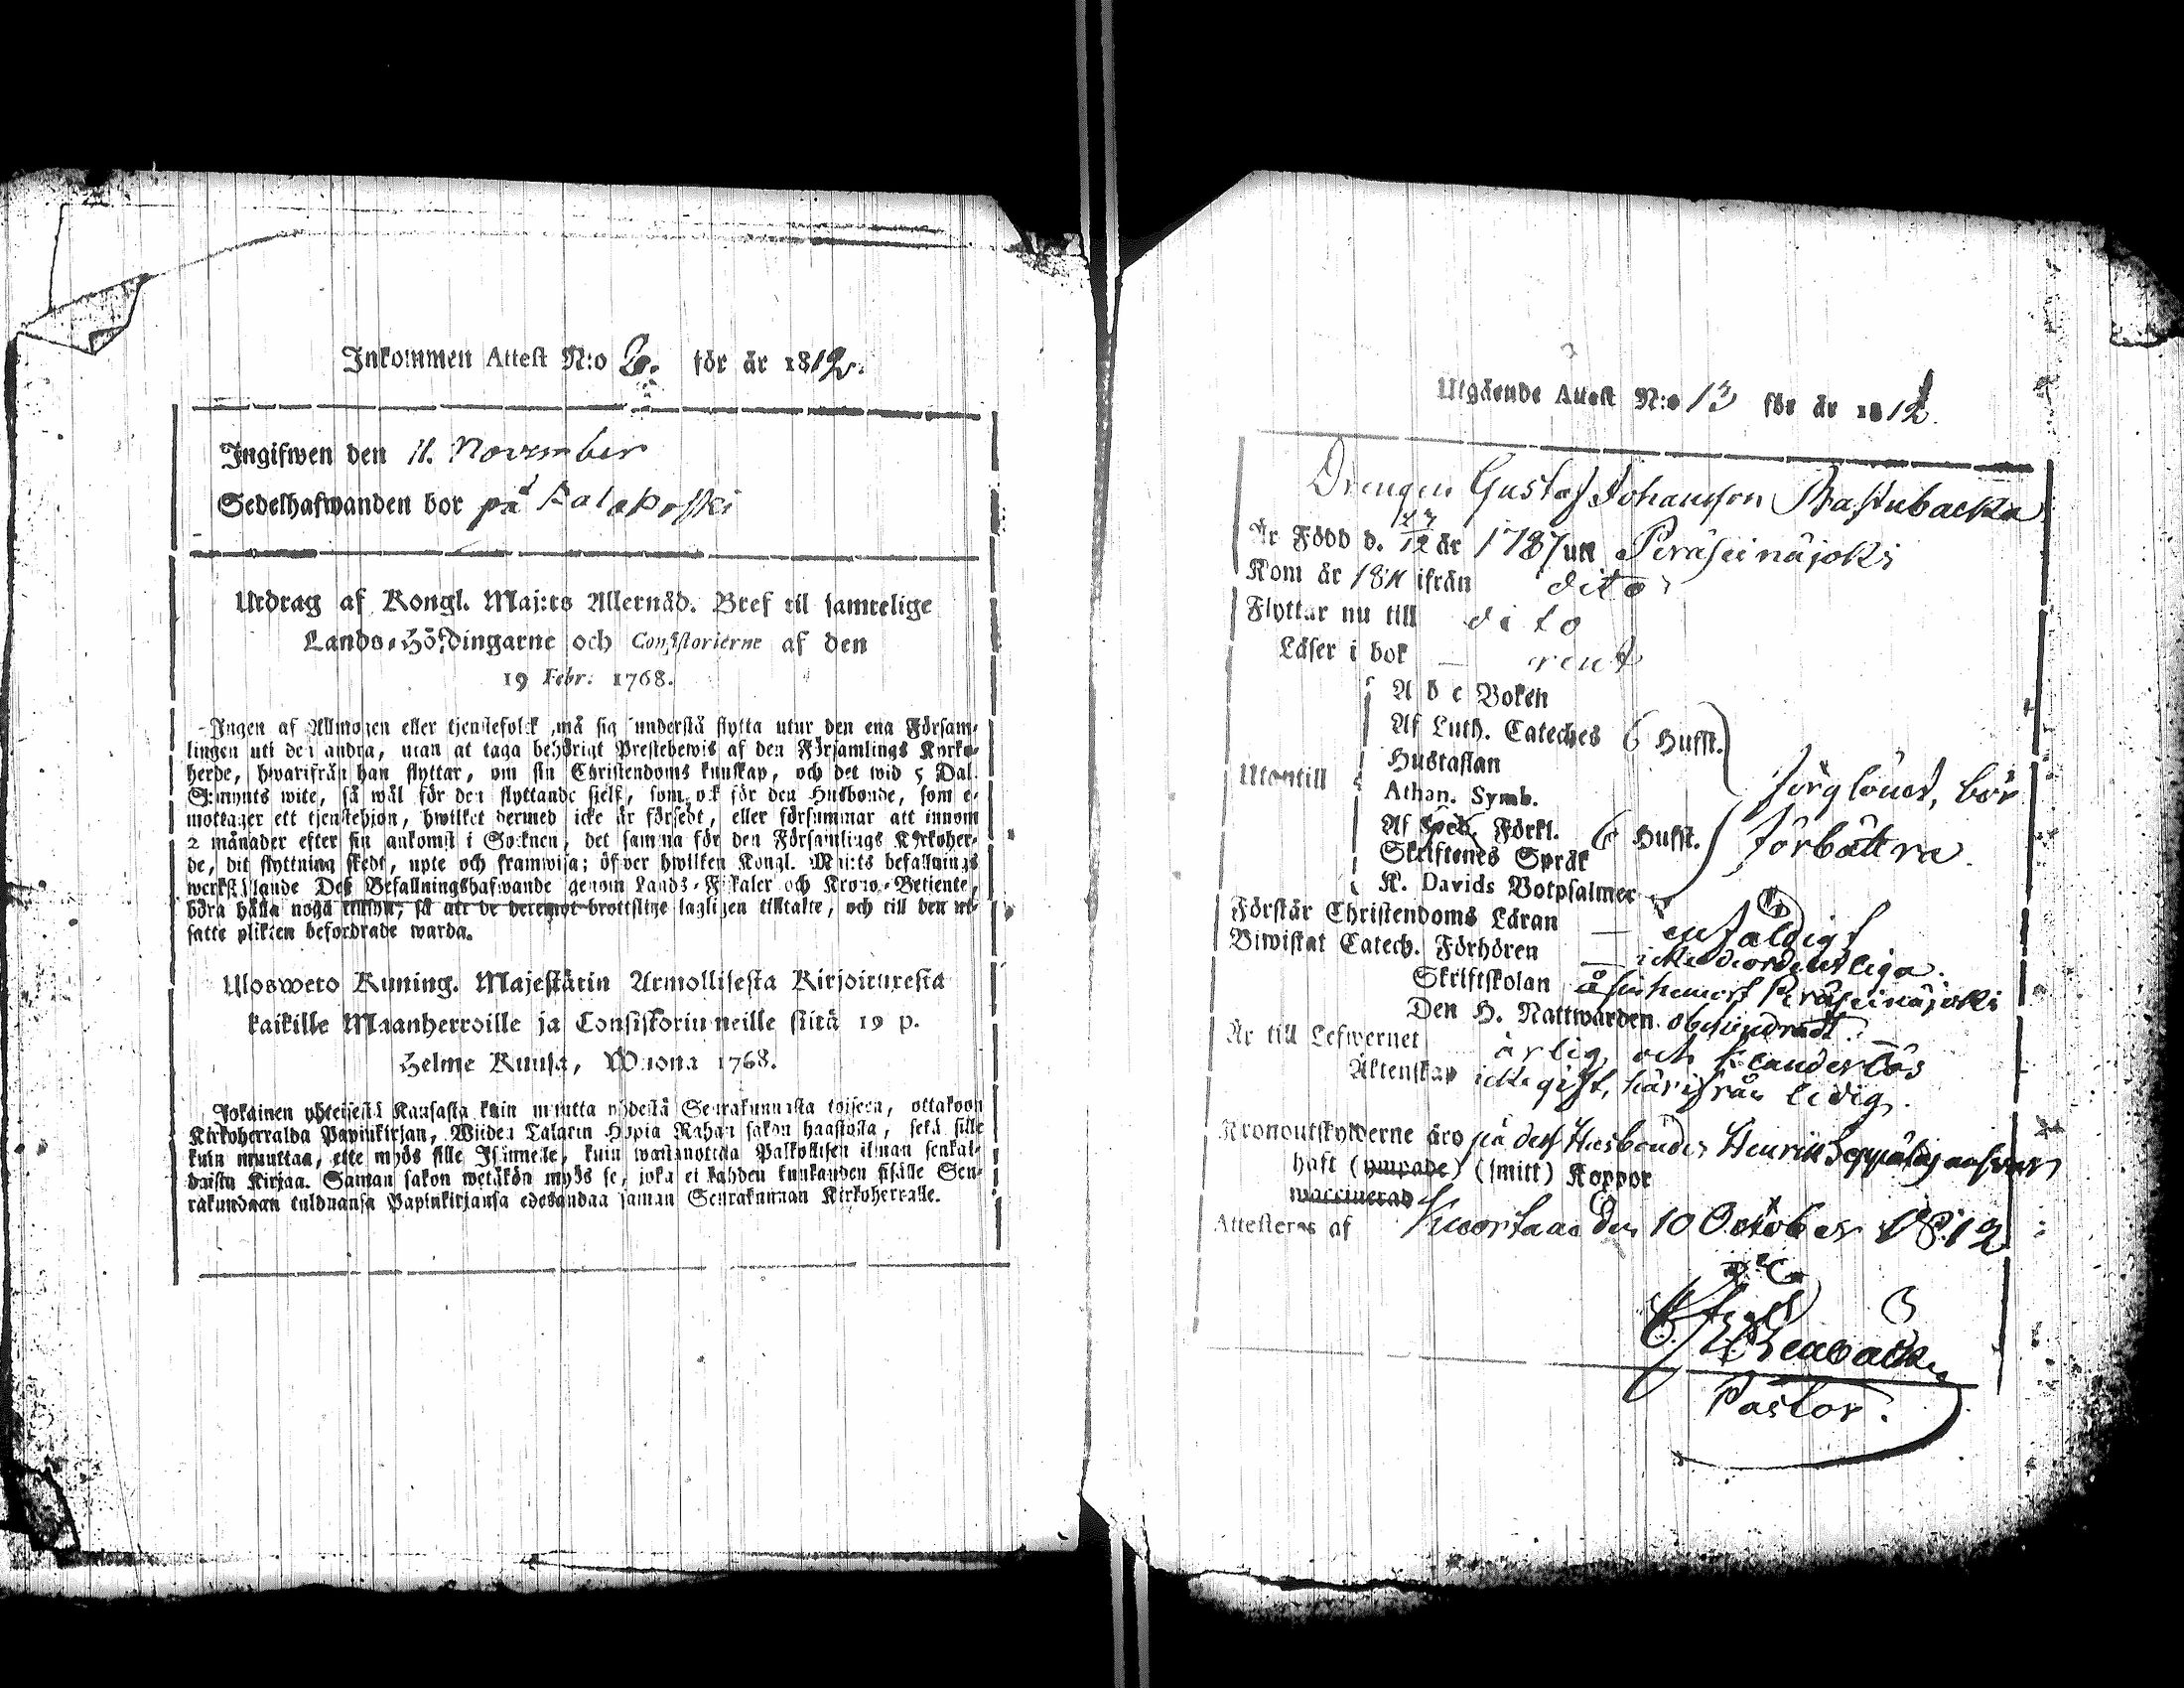 Inkommen Attest N:o 2. för år 1812.
Ingifwen den 11. November
Sedelhafwanden bor på Kalakoski
Utdrag af Kongl. Maj:ts Allernåd. Bref til samtelige
Lands-Höfdingarne och Consistorierne af den
19 Febr. 1768.
Ingen af Allmogen eller tjenstefolck må sig understå flytta utur den ena Försam-
lingen uti den andra, utan at taga behörigt Prestebewis af den Församlings Kyrko-
herde, hwarifrån han flyttar, om sin Christendoms kunskap, och det wid 5 Dal.
S:mynts wite, så wäl för den flyttande sjelf, som ock för den Husbonde, som e-
mottager ett tjenstehjon, hwilket dermed icke är försedt, eller försummar att innom
2 månader efter sin ankomst i Socknen, det samma för den Församlings Kyrkoher-
de, dit flyttning skedt, upte och framwisa; öfwer hwilken Kongl. Maj:ts befallnings
werkställande Deß Befallningshafwande genom Lands-Fiskaler och Krono-Betjente,
böra hålla noga tillsyn, så att de deremot brottslige lagligen tilltalte, och till den ut-
satte plikten befordrade warda.
Ulosweto Kuning. Majestätin Armollisesta Kirjoituxesta
kaikille Maanherroille ja Consistoriumeille siitä 19 p.
Helme Kuusa, Wuona 1768.
Jokainen yhteisestä Kansasta kuin muutta yhdestä Seurakunnasta toiseen, ottakoon
Kirkoherralda Papinkirjan, Wiiden Talarin Hopia Rahan sakon haastolla, sekä sille
kuin muuttaa, ette myös sille Isännelle, kuin wastanottaa Palkollisen ilman senkal-
daista Kirjaa. Saman sakon wetäkön myös se, joka ei kahden kuukauden sisälle Seu-
rakundaan tulduansa Papinkirjansa edesandaa saman Seurakunnan Kirkoherralle.
Utgående Attest N:o 13 för år 1812.
Drengen Gustaf Johansson
Är Född d. 23/12 år 1787 uti Peräseinäjoki
Kom år 1811 ifrån dito
Flyttar nu till dito
Läser i bok — rent
A b c Boken
Af Luth. Cateches 6 Hufst.
Hustaflan
Utantill
Athan. Symb. förglömt, bör
Af Förkl. 6 Hufst. förbättra
Skriftenes Språk
K. Davids Botpsalmer
Förstår Christendoms Läran — enfaldigt
Biwistat Catech. Förhören — icke ordentliga.
Skriftskolan å sin hemort Peräseinäjoki
Den H. Nattwarden obehindradt.
Är till Lefwernet ärlig och klanderlös
Äktenskap icke gift, härifrån ledig.
Kronoutskylderne äro på dess Husbondes Henrik
haft (ympade) (smitt) Koppor
waccinerad
Attesteras af Kuortane den 10 October 1812
Pastor.